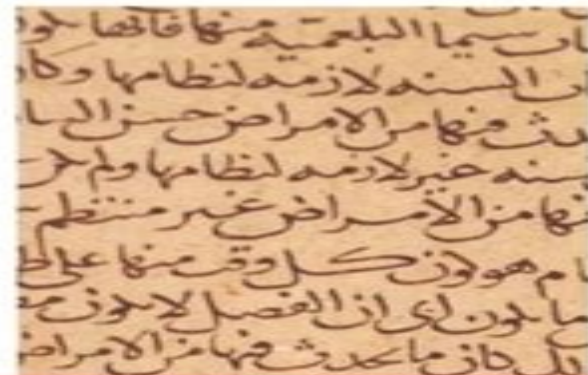 سيما البلغميه منها فانها
السنه لازمه لنظامها وكا
دث فيها من الامراض حسن
سنه غير لازمه لنظامها ولم
فيها من الامراض غير منتظم
هو لون كل وقت منها على
يلون اى ان الفصل لا يلون
كان ما يحدث فيها من الامراض